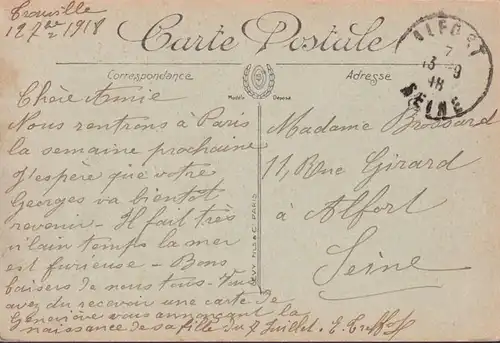 Trouville
12 7bre 1918
Carte Postale
ALFORT
7
13-9
18
SEINE
Correspondance
Adresse
Modèle Déposé
Chère Amie
Nous rentrons à Paris
la semaine prochaine
J'espère que votre
Georges va bientôt
revenir - Il fait très
vilain temps la mer
est furieuse - Bons
baisers de nous tous - Vous
avez du recevoir une carte de
Geneviève vous annonçant la
naissance de sa fille du 7 Juillet - E.
LEVY FILS & Cie PARIS
Madame Brossard
11, Rue Girard
à Alfort
Seine